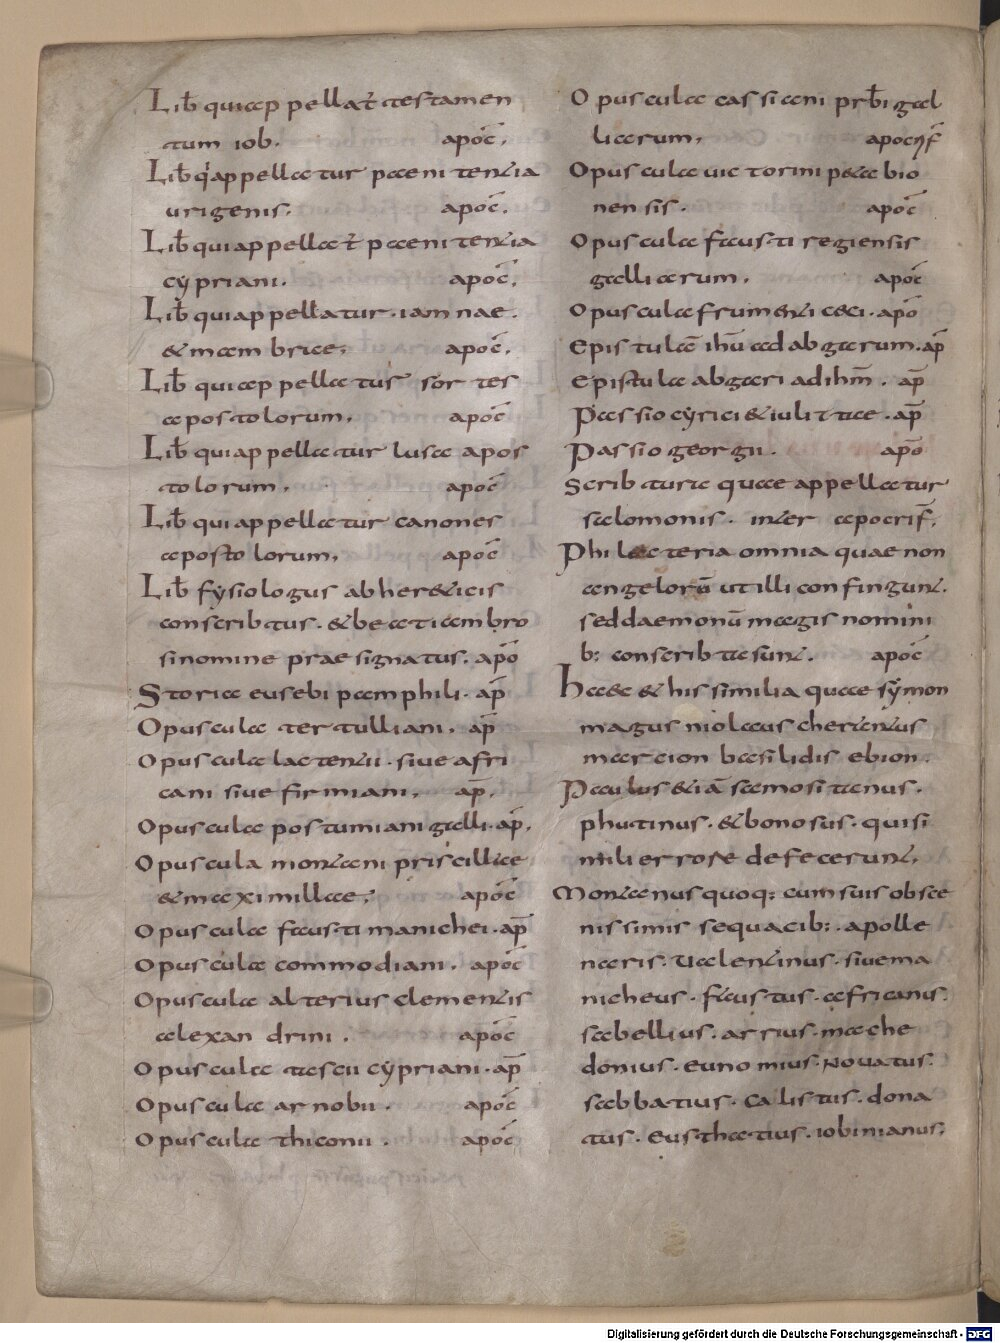 Lib̄ qui appellat̄ testamen
tum iob. apoc̄.
Lib̄ qui appellatur paenitentia
urigenis. apoc̄.
Lib̄ qui appellat̄ paenitentia
cypriani. apoc̄.
Lib̄ qui appellatur. iamnae.
& mambrae; apoc̄.
Lib̄ qui appellatus sortes
apostolorum. apoc̄
Lib̄ qui appellatur lusa apos
tolorum. apoc̄
Lib̄ qui appellatur canones
apostolorum. apoc̄
Lib̄ fysiologus ab her&icis
conscribtus. & beati ambro
sinomine praesignatus. apō
Storia eusebi pamphili. ap̄
Opuscula tertulliani. ap̄
Opuscula lactentii. siue afri
cani siue firmiani. ap̄.
Opuscula postumiani galli. ap̄.
Opuscula montani priscillae
& maximillae; apoc̄
Opuscula fausti manichei. ap̄
Opuscula commodiani. apoc̄
Opuscula alterius clementis
alexandrini. apoc̄
Opuscula tascii cypriani. ap̄
Opuscula arnobii. apoc̄
Opuscula thiconii. apoc̄
Opuscula cassiani prb̄i gal
liarum. apocrif̄
Opuscula uictorini petabio
nensis. apoc̄
Opuscula fausti regiensis
galliarum. apoc̄
Opuscula frumenti ceci. apō
Epistulā ihū ad abgarum. ap̄
Epistula abgari ad ihm̄. ap̄
Passio cyrici & iulittae. ap̄
Passio georgii. apō
Scribtura quae appellatur
salomonis. inter apocrif̄.
Philacteria omnia quae non
angelorū ut illi confingunt.
sed daemonū magis nomini
b; conscribta sunt. apoc̄
Haec & his similia quae symon
magus niolaus cherintus
marcion basilidis ebion.
Paulus &iā samositanus.
photinus. & bonosus. qui si
mili errore defecerunt.
Montanus quoq; cum suis obsce
nissimis sequacib;. apolle
naris. Ualentinus. siue ma
nicheus. faustus. africanus.
sabellius. arrius. mache
donius. eunomius. Nouatus.
sabbatius. Calistus. dona
tus. eusthatius. iobinianus.
Digitalisierung gefördert durch die Deutsche Forschungsgemeinschaft - DFG